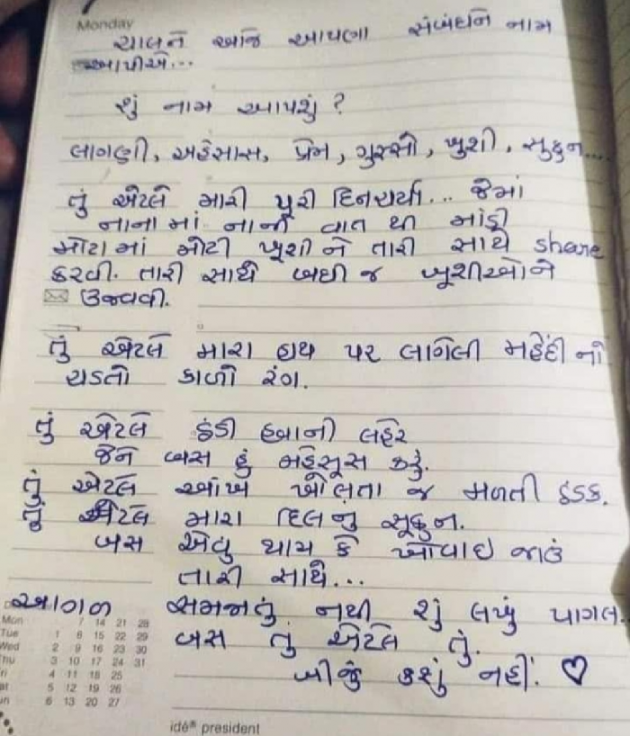 Monday
ચાલને આજે આપણા સંબંધને નામ
આપીએ...
શું નામ આપશું ?
લાગણી, અહેસાસ, પ્રેમ, ગુસ્સો, ખુશી, સુકુન....
તું એટલે મારી પૂરી દિનચર્યા... જેમાં
નાનામાં નાની વાત થી માંડી
મોટામાં મોટી ખૂશી ને તારી સાથે share
કરવી. તારી સાથે બધી જ ખૂશીઓને
ઉજવવી.
તું એટલે મારા હાથ પર લાગેલી મહેંદી નો
ચડતો કાળો રંગ.
તું એટલે ઠંડી હવાની લહેર
જેને બસ હું મહેસૂસ કરું.
તું એટલે આંખ ખોલતા જ મળતી ઠંડક.
તું એટલે મારા દિલનુ સૂકુન.
બસ એવુ થાય કે ખોવાઇ જાઉં
તારી સાથે...
આગળ સમજાતું નથી શું લખું પાગલ..
બસ તુ એટલે તું.
બીજું કશું નહીં. ♡
Mon 7 14 21 28
Tue 1 8 15 22 29
Wed 2 9 16 23 30
Thu 3 10 17 24 31
4 11 18 25
5 12 19 26
6 13 20 27
idé® president